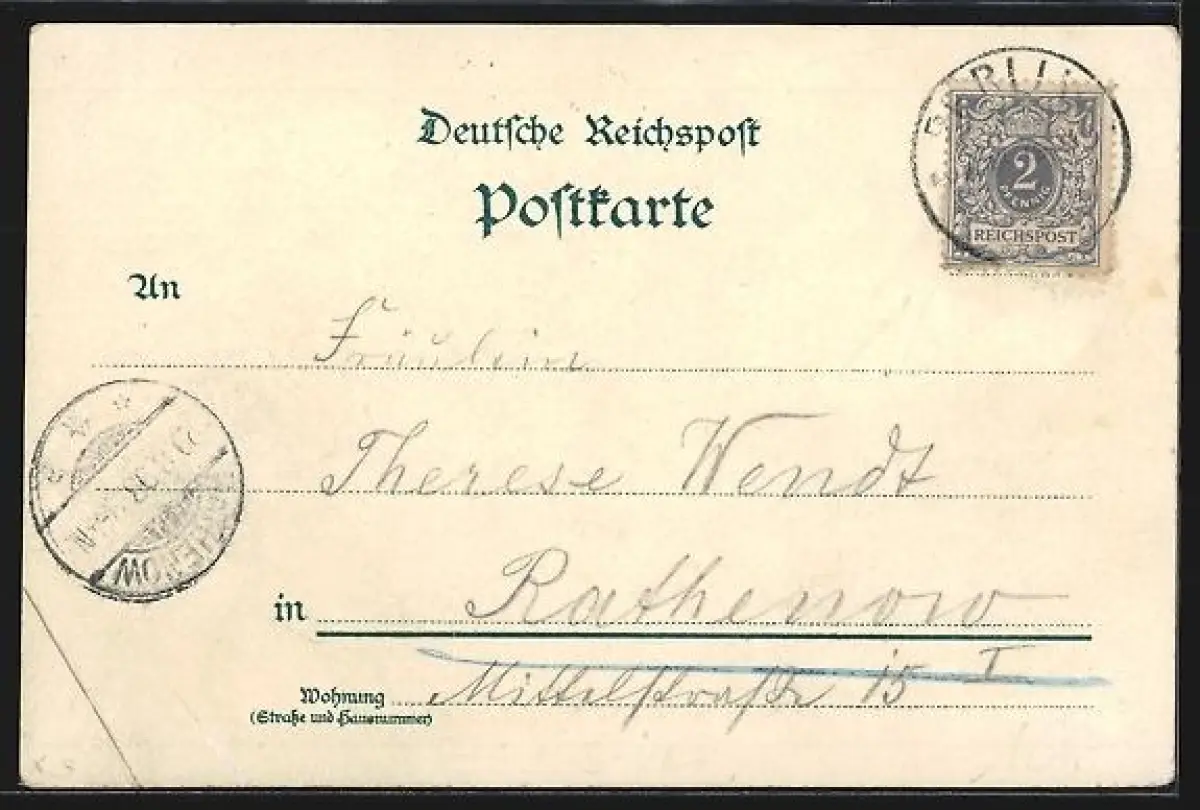 BERLIN
2
PFENNIG
REICHSPOST
Deutsche Reichspost
Postkarte
An
Fräulein
Therese Wendt
in Rathenow
Mittelstraße 15 I
Wohnung
(Straße und Hausnummer)
RATHENOW